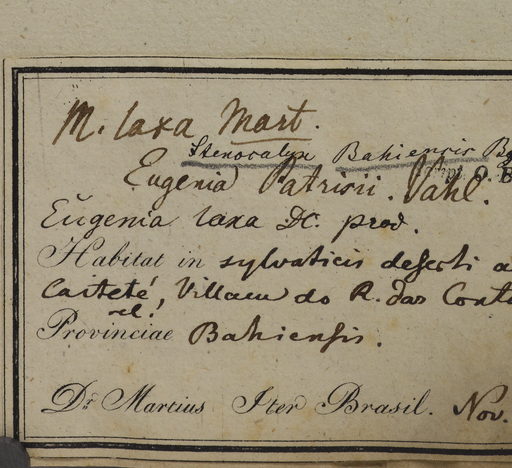 M. laxa Mart.
Stenocalyx Bahiensis Bg
Eugenia Patrisii. Vahl.
Eugenia laxa DC. prod.
Habitat in sylvaticis deserti a
Caiteté, Villam do R. das Conta
el.
Provinciae Bahiensis.
Dr. Martius Iter Brasil. Nov.